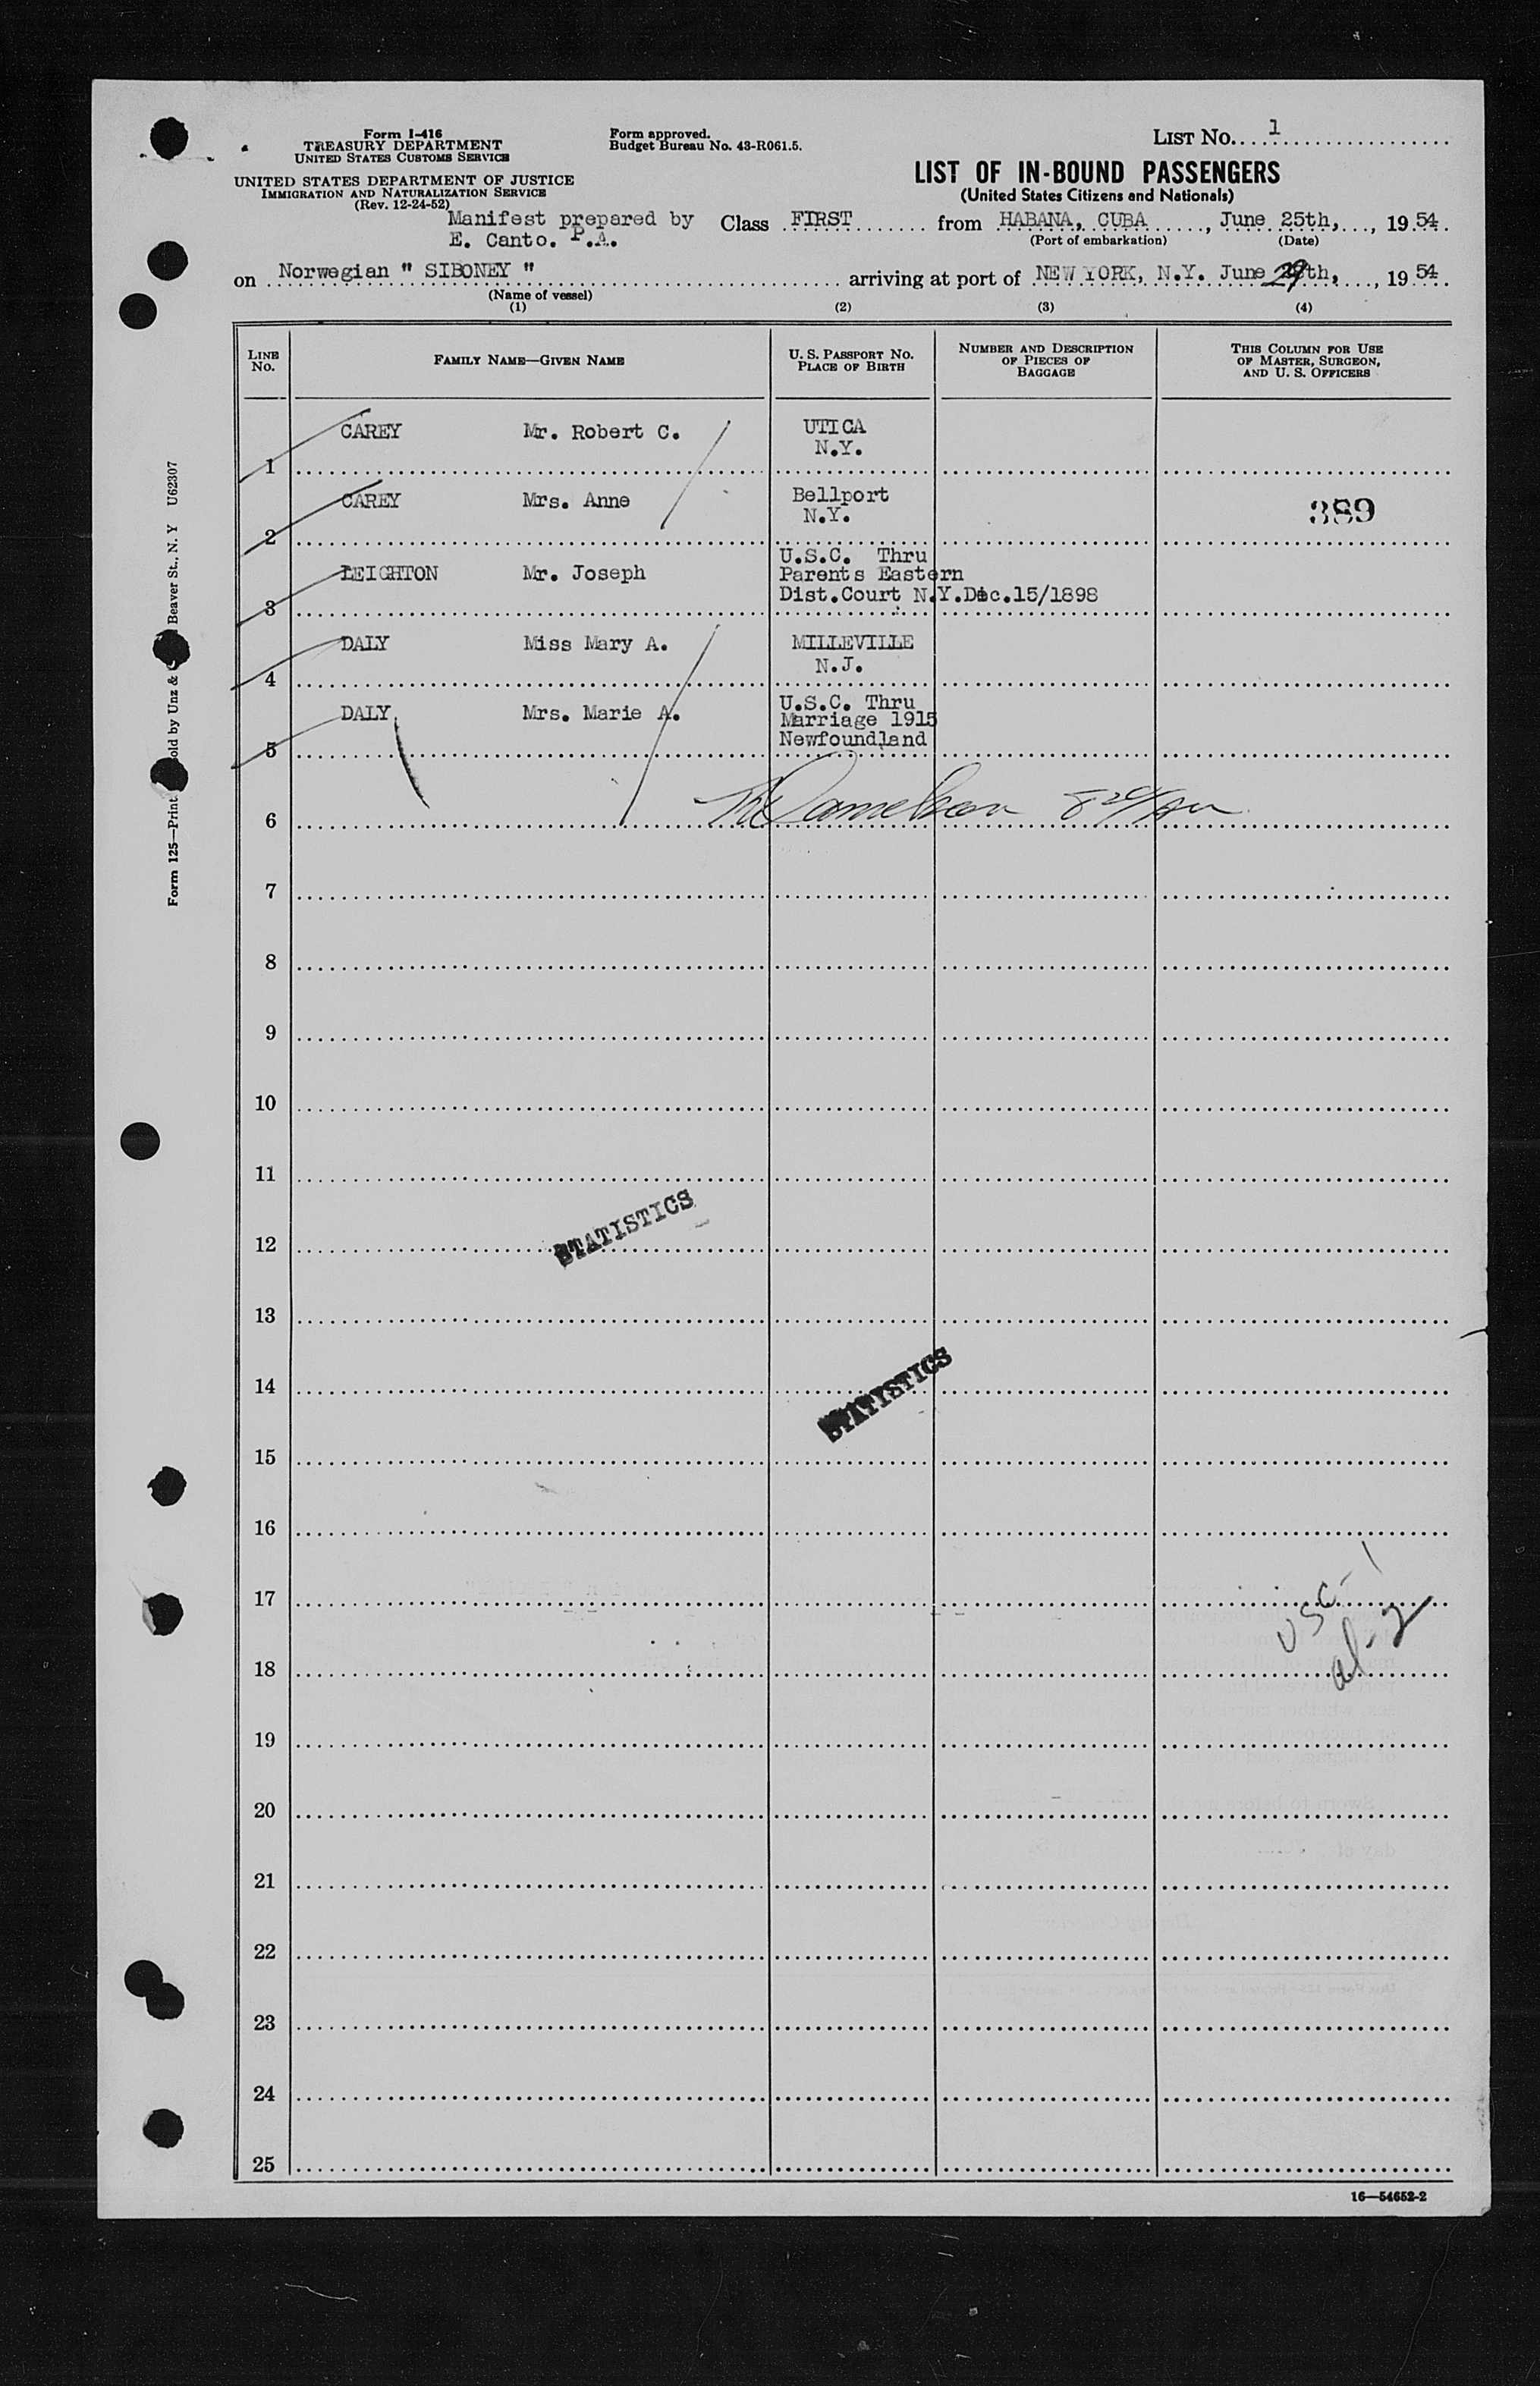 Form I-416
TREASURY DEPARTMENT
UNITED STATES CUSTOMS SERVICE
UNITED STATES DEPARTMENT OF JUSTICE
IMMIGRATION AND NATURALIZATION SERVICE
(Rev. 12-24-52)
Form approved.
Budget Bureau No. 43-R061.5.
LIST No. 1
LIST OF IN-BOUND PASSENGERS
(United States Citizens and Nationals)
Manifest prepared by
E. Canto. P.A.
Class FIRST from HABANA, CUBA, June 25th, 1954.
(Port of embarkation) (Date)
on Norwegian " SIBONEY " arriving at port of NEW YORK, N.Y. June 29th, 1954.
(Name of vessel)
(1) (2) (3) (4)
LINE No. FAMILY NAME—GIVEN NAME U. S. PASSPORT No. PLACE OF BIRTH NUMBER AND DESCRIPTION OF PIECES OF BAGGAGE THIS COLUMN FOR USE OF MASTER, SURGEON, AND U. S. OFFICERS
1 CAREY Mr. Robert C. UTICA
N.Y.
2 CAREY Mrs. Anne Bellport
N.Y.
389
3 LEIGHTON Mr. Joseph U.S.C. Thru
Parents Eastern
Dist.Court N.Y.Dec.15/1898
4 DALY Miss Mary A. MILLEVILLE
N.J.
5 DALY, Mrs. Marie A. U.S.C. Thru
Marriage 1915
Newfoundland
6
7
8
9
10
11
12
STATISTICS
13
14
STATISTICS
15
16
17
USC-1
18
al-2
19
20
21
22
23
24
25
16—54652-2
Form 125—Print old by Unz & Beaver St., N. Y U62307